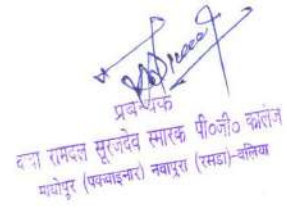 प्रबन्धक
बाबा रामदल सूरजदेव स्मारक पी०जी० कालेज
माधोपुर (पक्वाइनार) नवापुरा (रसडा)-बलिया